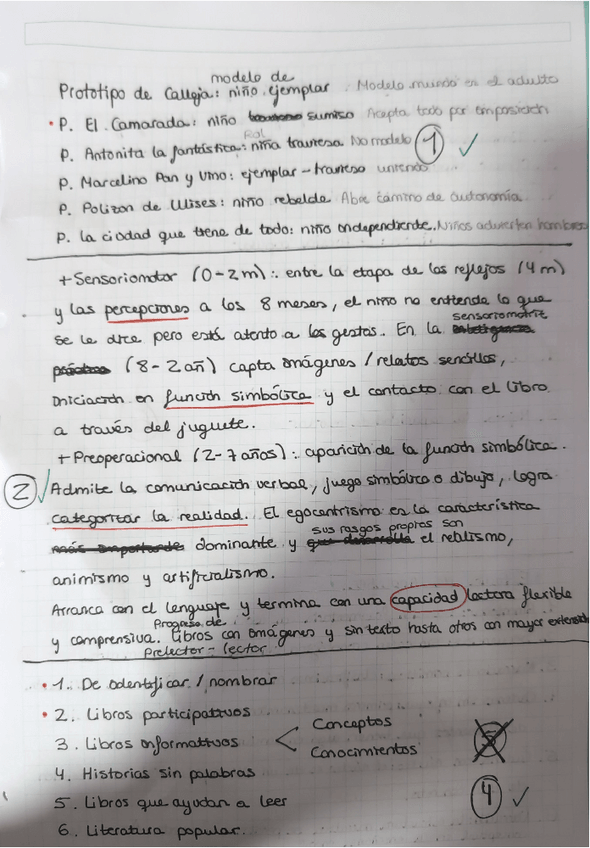 modelo de
Prototipo de Calleja: niño ejemplar. Modelo mundo en el adulto
• P. El Camarada: niño sumiso Acepta todo por imposición
Rol
P. Antonita la fantástica: niña traviesa No modelo 1 ✓
P. Marcelino Pan y Vino: ejemplar - travieso
P. Polizon de Ulises: niño rebelde Abre camino de autonomía
P. la ciudad que tiene de todo: niño independiente. Niños advierten hombres
+ Sensoriomotor (0-2 m): entre la etapa de los reflejos (4 m)
y las percepciones a los 8 meses, el niño no entiende lo que
se le dice pero está atento a los gestos. En la sensoriomotriz
(8-2 añ) capta imágenes / relatos sencillos,
iniciación en función simbólica y el contacto con el libro
a través del juguete.
+ Preoperacional (2-7 años): aparición de la función simbólica.
2 ✓ Admite la comunicación verbal, juego simbólico o dibujo, logra
categorizar la realidad. El egocentrismo es la característica
sus rasgos propios son
más importante dominante y que desarrolla el realismo,
animismo y artificialismo.
Arranca con el lenguaje y termina con una capacidad lectora flexible
Progreso de
y comprensiva. libros con imágenes y sin texto hasta otros con mayor extensión
Prelector - lector
• 1. De identificar / nombrar
• 2. Libros participativos
3. Libros informativos < Conceptos
Conocimientos
4. Historias sin palabras
5. Libros que ayudan a leer
4 ✓
6. Literatura popular.